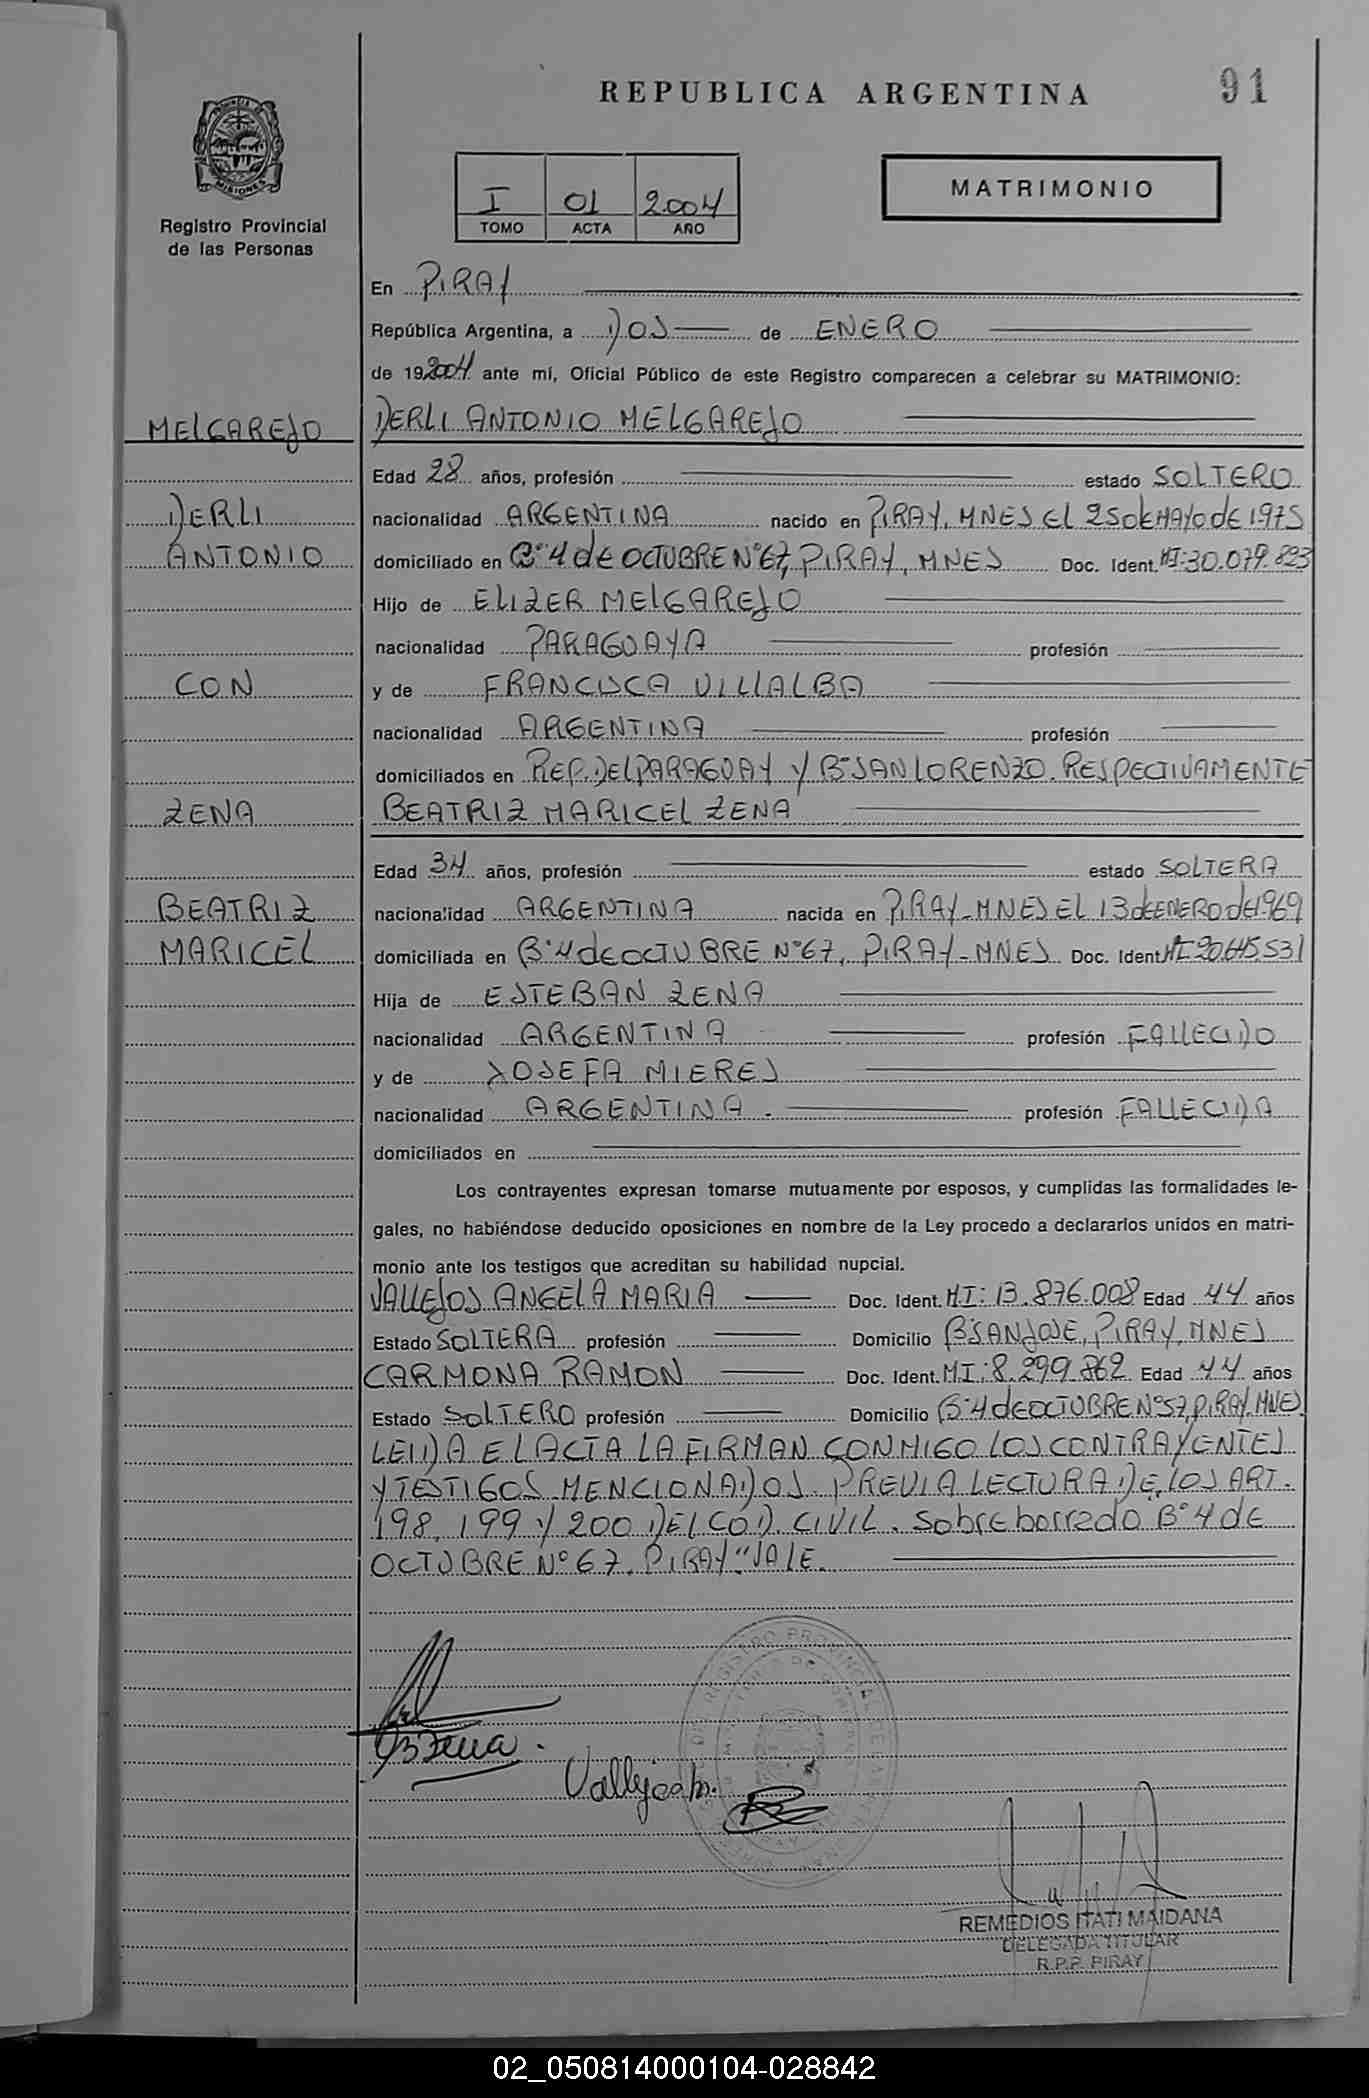 REPUBLICA ARGENTINA
91
MISIONES
Registro Provincial
de las Personas
I 01 2004
TOMO ACTA AÑO
MATRIMONIO
En PIRAY
República Argentina, a DOS de ENERO
de 19 2004 ante mí, Oficial Público de este Registro comparecen a celebrar su MATRIMONIO:
MELGAREJO
DERLI ANTONIO MELGAREJO
Edad 28 años, profesión estado SOLTERO
DERLI
nacionalidad ARGENTINA nacido en PIRAY, MNES EL 25 DE MAYO DE 1975
ANTONIO
domiciliado en B° 4 de OCTUBRE N° 67, PIRAY, MNES Doc. Ident. MI: 30.079.823
Hijo de ELIZER MELGAREJO
nacionalidad PARAGUAYA profesión
CON
y de FRANCISCA VILLALBA
nacionalidad ARGENTINA profesión
domiciliados en REP. DEL PARAGUAY Y B° SAN LORENZO. RESPECTIVAMENTE
ZENA
BEATRIZ MARICEL ZENA
Edad 34 años, profesión estado SOLTERA
BEATRIZ
nacionalidad ARGENTINA nacida en PIRAY - MNES EL 13 de ENERO de 1969
MARICEL
domiciliada en B° 4 de OCTUBRE N° 67, PIRAY - MNES Doc. Ident. MI 20.645.531
Hija de ESTEBAN ZENA
nacionalidad ARGENTINA profesión FALLECIDO
y de JOSEFA MIERES
nacionalidad ARGENTINA. profesión FALLECIDA
domiciliados en
Los contrayentes expresan tomarse mutuamente por esposos, y cumplidas las formalidades le-
gales, no habiéndose deducido oposiciones en nombre de la Ley procedo a declararlos unidos en matri-
monio ante los testigos que acreditan su habilidad nupcial.
VALLEJOS ANGELA MARIA Doc. Ident. MI: 13.876.008 Edad 44 años
Estado SOLTERA profesión Domicilio B° SAN JOSE, PIRAY, MNES
CARMONA RAMON Doc. Ident. MI: 8.299.862 Edad 44 años
Estado SOLTERO profesión Domicilio B° 4 de OCTUBRE N° 57, PIRAY, MNES
LEIDA EL ACTA LA FIRMAN CONMIGO LOS CONTRAYENTES
Y TESTIGOS MENCIONADOS. PREVIA LECTURA DE LOS ART.
198, 199 Y 200 DEL COD. CIVIL. Sobre borrado B° 4 de
OCTUBRE N° 67, PIRAY" VALE.
BZena.
REMEDIOS ITATI MAIDANA
DELEGADA TITULAR
R.P.P. PIRAY
02_050814000104-028842